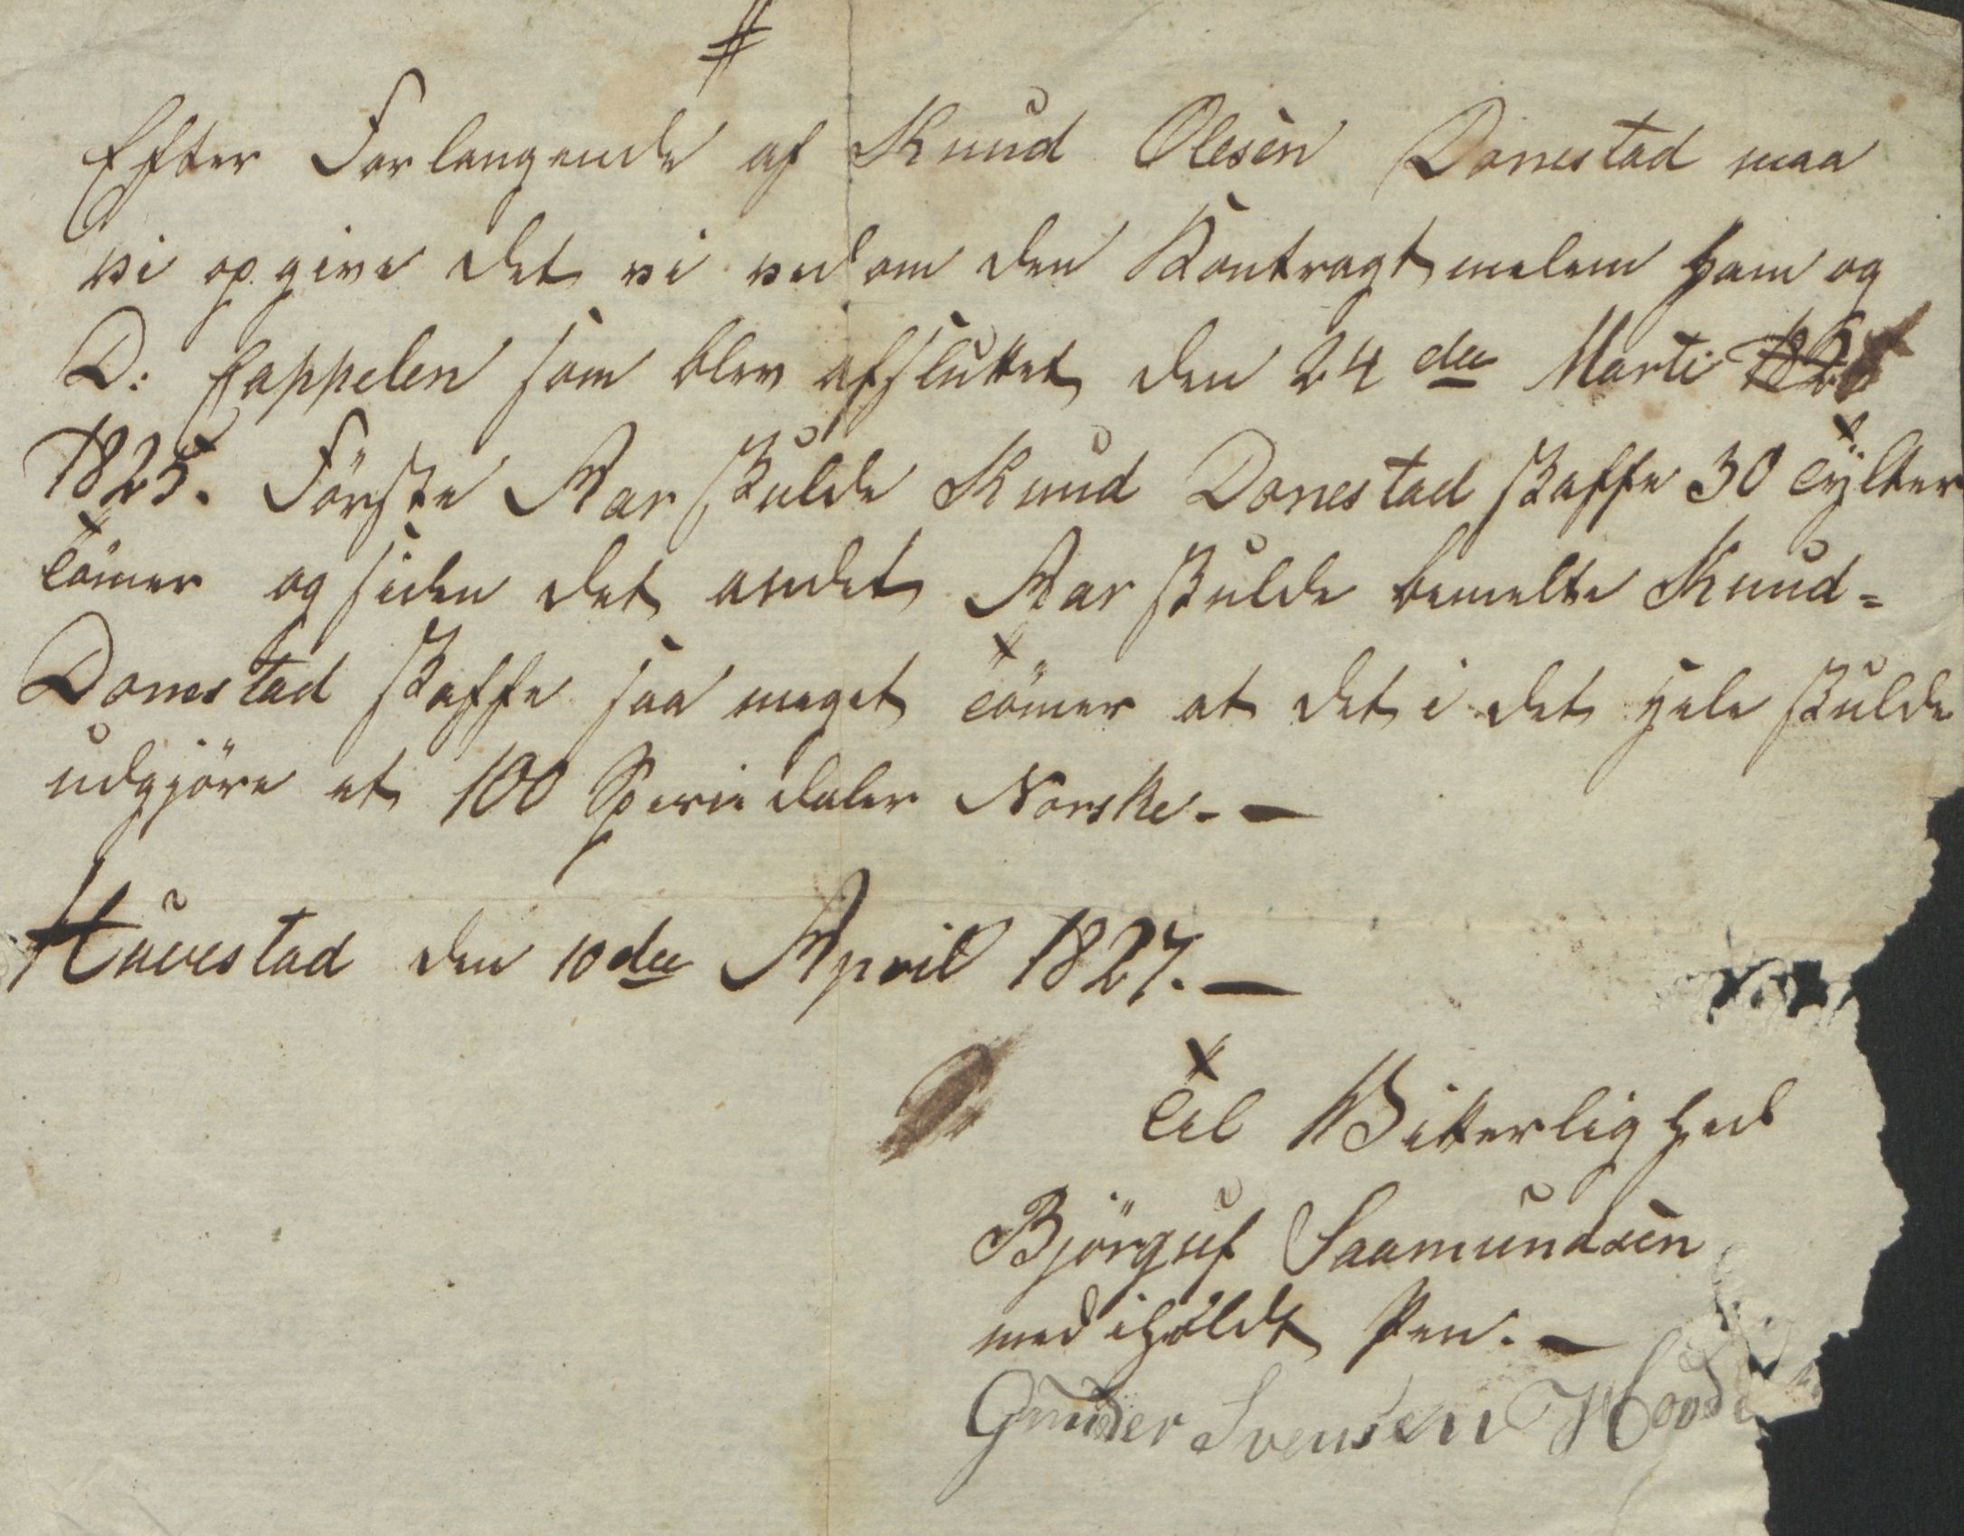 Efter Forlangende af Knud Olesen Donestad maa
vi opgive det vi ved om den Kontragt melem ham og
D: Cappelen som blev afsluttet den 24de Marti
1825. Förste Aar skulde Knud Donestad skaffe 30 Tylter
Tömer og siden det andet Aar skulde bemelte Knud=
Donestad skaffe saa meget Tömer at det i det hele skulde
udgjöre et 100 Speciedaler Norske. —
Huvestad den 10de April 1827. —
Til Vitterlighed
Björguf Saamundsen
med iholdt Pen. —
Gunder Svensen